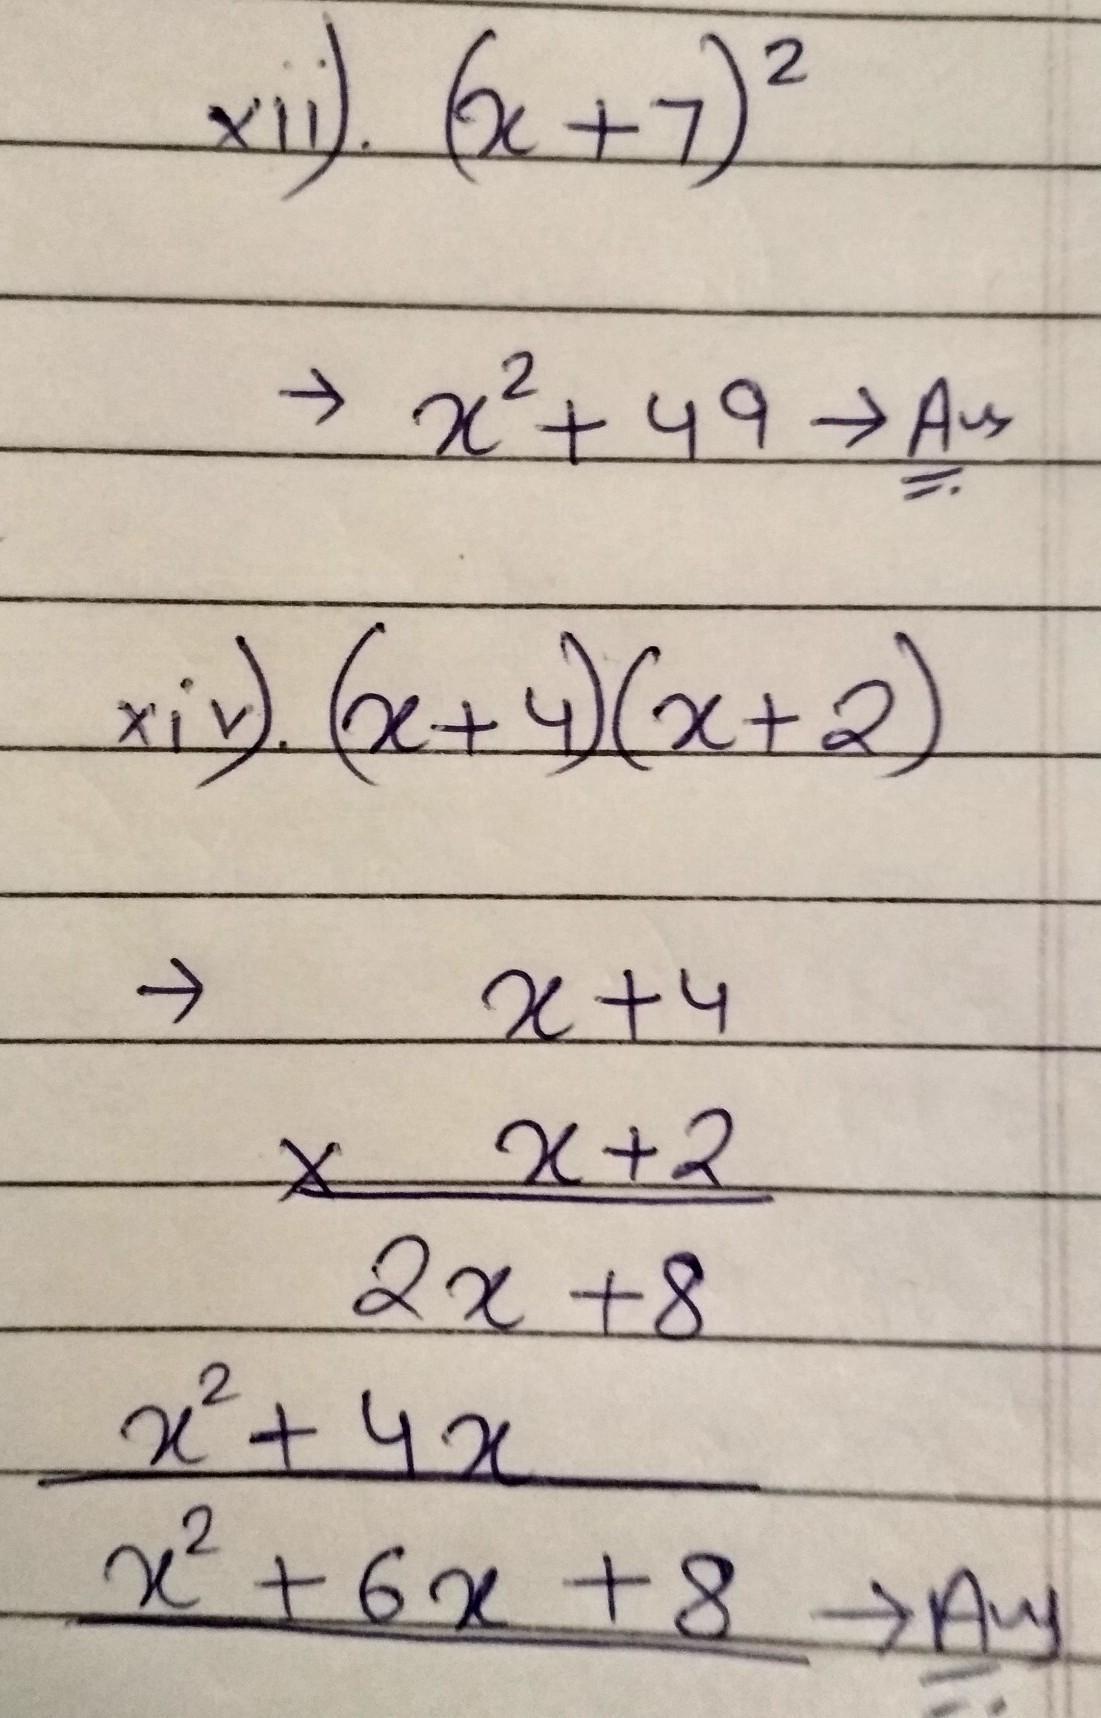 xii). (x+7)²
→ x²+49 → Ans
xiv). (x+4)(x+2)
→ x+4
× x+2
2x +8
x²+4x
x² +6x +8 → Ans